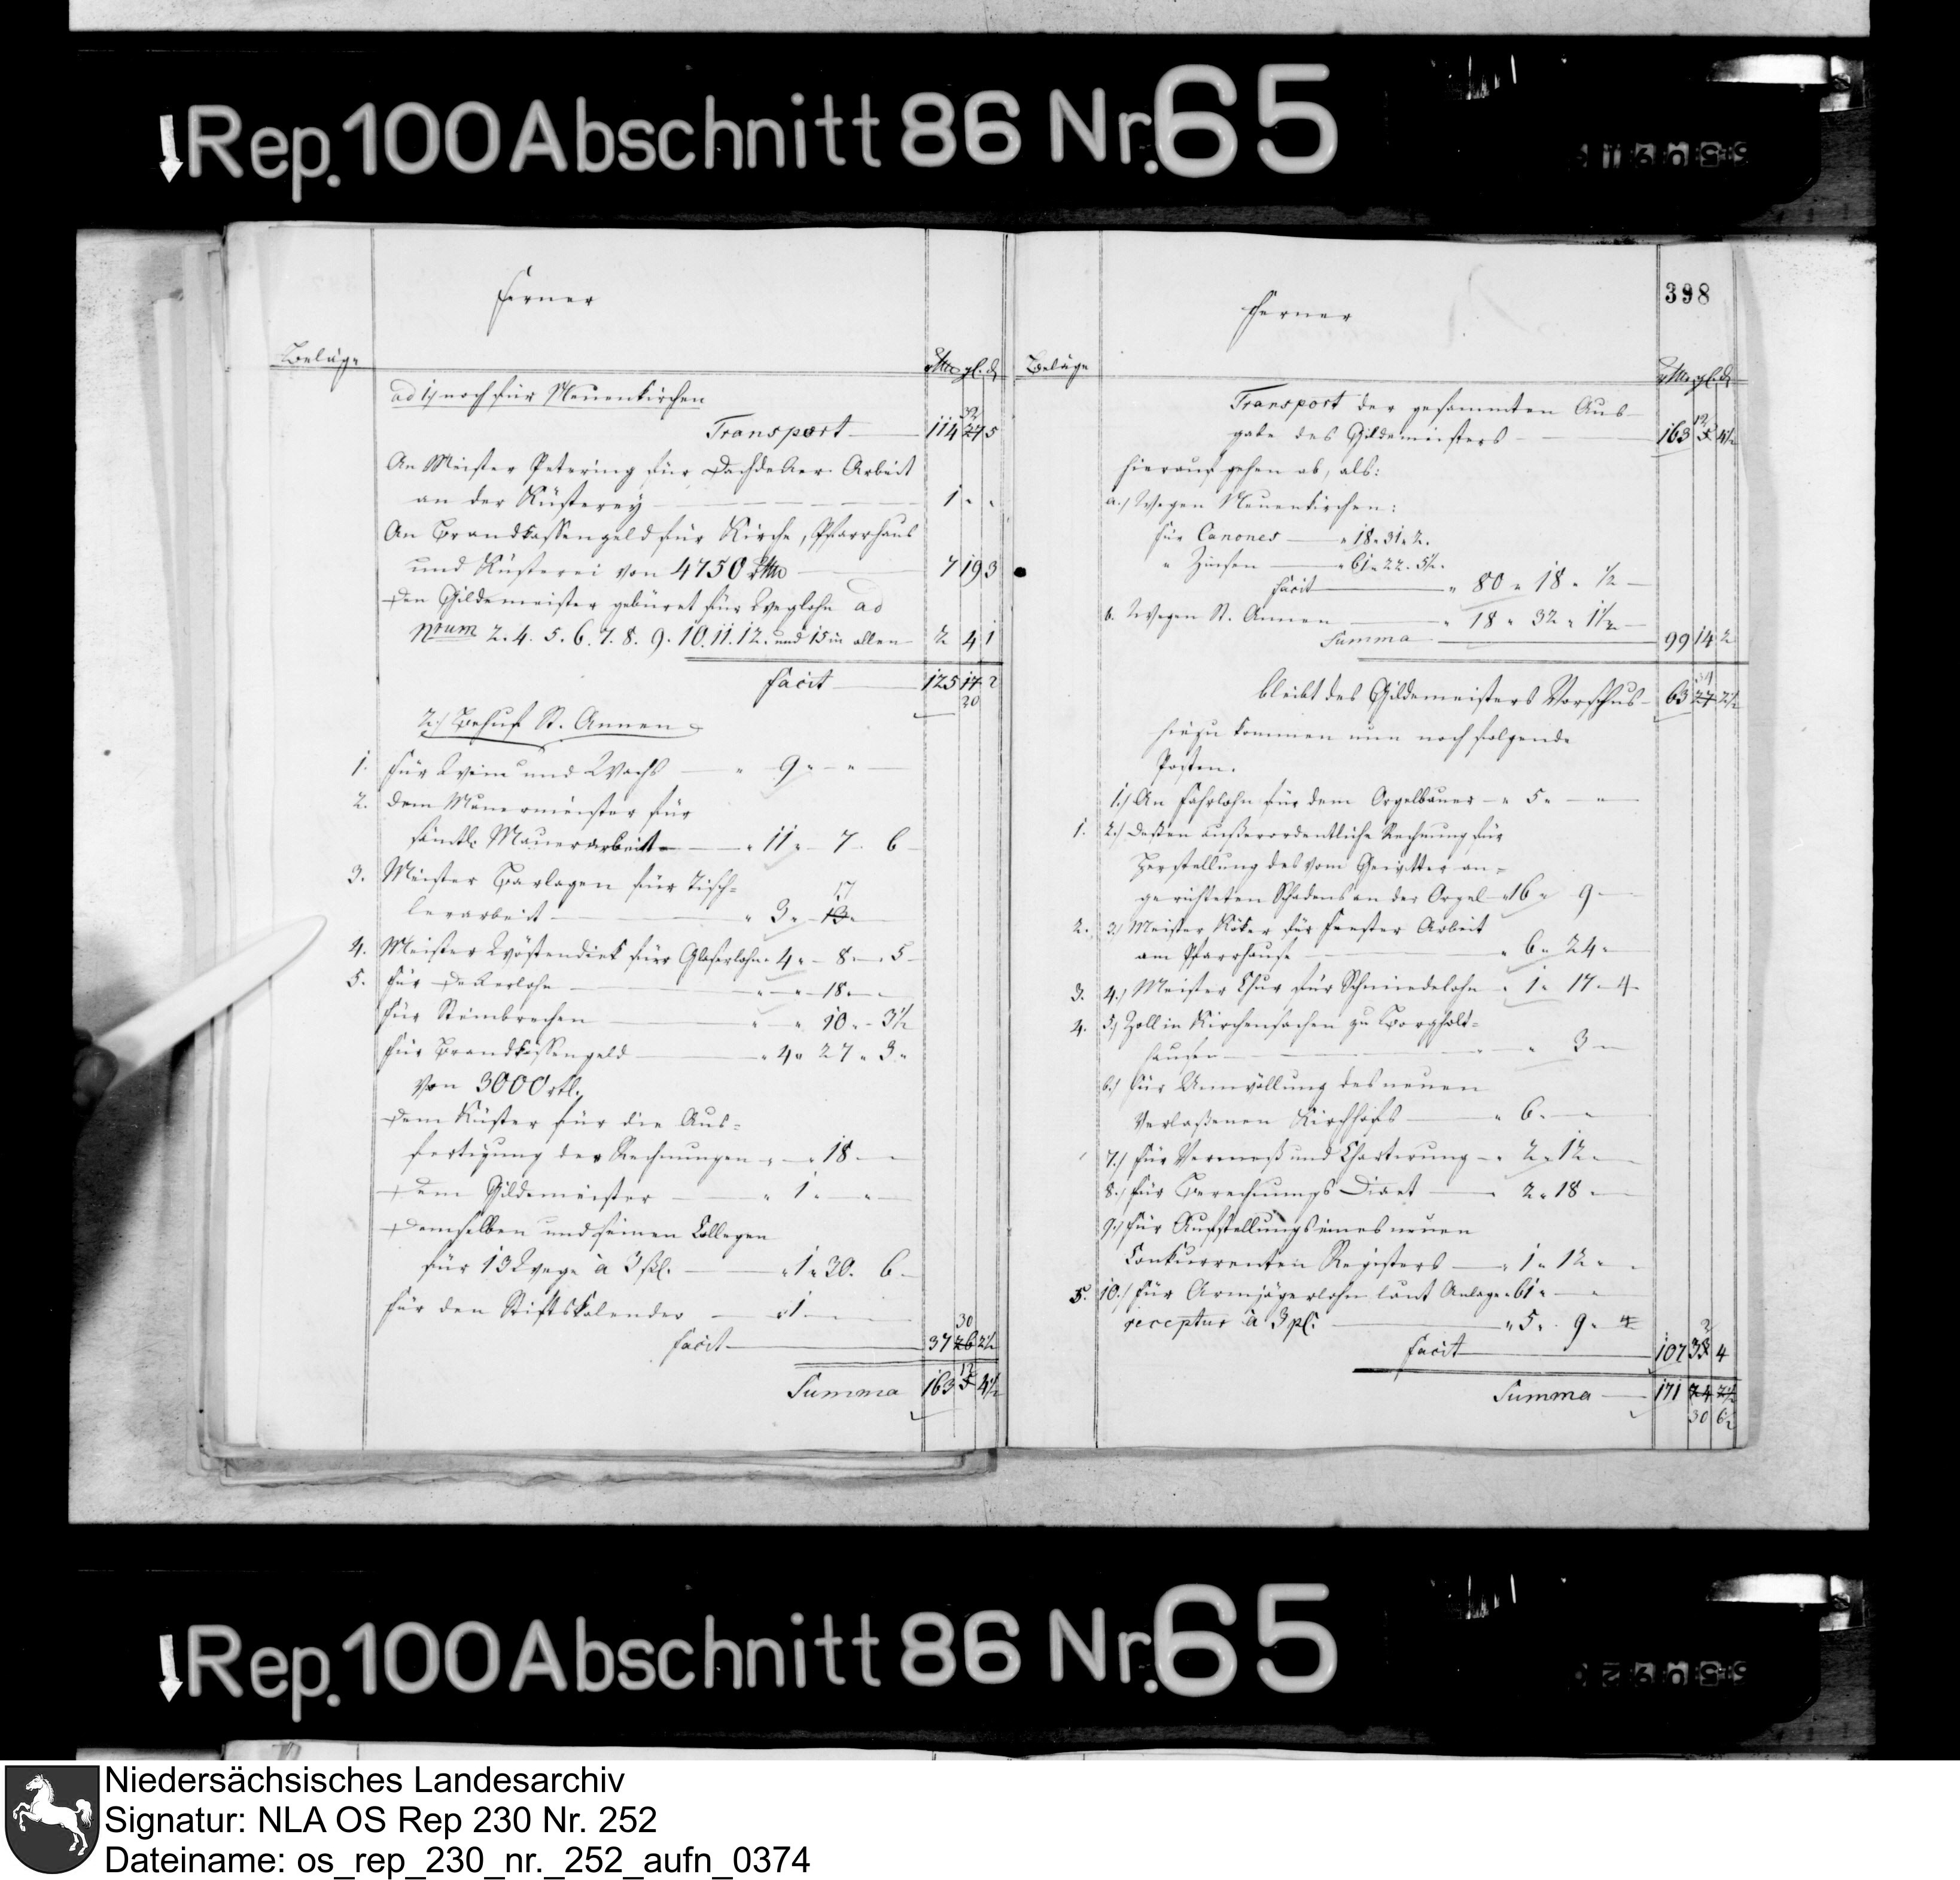 Rep. 100 Abschnitt 86 Nr. 65
ferner
Beläge
rthlr gl. d
ad 1.) noch für Neuenkirchen
Transport 114 27 5
32
An Meister Petering für Dachdecker Arbeit
an der Küsterey 1 " "
An Brandkassengeld für Kirche, Pfarrhaus
und Küsterei von 4750 rthlr 7 19 3
Den Gildemeister gebüret für Weglohn ad
Nrum 2. 4. 5. 6. 7. 8. 9. 10. 11. 12. und 15 in allen 2 4 1
facit 125 14 2
20
2.) Behuf St. Annen
1. für Wein und Wachs " 9 " "
2. dem Mauermeister für
sämtl. Mauerarbeit " 11 " 7 . 6
3. Meister Barlagen für Tisch=
lerarbeit " 3 " 13 "
17
4. Meister Wöstendiek für Glaserlohn " 4 " 8 " 5
5. für Deckerlohn " " 18 "
für Steinbrechen " " 10 " 3½
für Brandkassengeld " 4 " 27 " 3 "
von 3000 rtl.
Dem Küster für die Aus=
fertigung der Rechnungen " " 18
Dem Gildemeister " 1 " "
Demselben und seinen Collegen
für 13 Wege à 3 ßl. " 1 " 30 . 6
für den Stiftskalender " 1
facit 37 26 2½
30
Summa 163 5 4½
12
398
ferner
Beläge
rthlr gl. d
Transport der gesammten Aus
gabe des Gildemeisters 163 5 4½
12
hierauf gehen ab, als:
a.) Wegen Neuenkirchen:
für Canones " 18 " 31 " 2.
" Zinsen " 61 " 22 . 5½ "
facit " 80 " 18 " ½
b. Wegen St. Annen " 18 " 32 " 1½
Summa 99 14 2
bleibt des Gildemeisters Vorschus 63 27 2½
hiezu kommen nun noch folgende
Posten.
1.) An Fahrlohn für dem Orgelbauer " 5 " "
1. 2.) Deßen außerordentliche Rechnung für
Herstellung des vom Gewitter an=
gerichteten Schadens an der Orgel " 16 " 9
2. 3.) Meister Köker für Fenster Arbeit
am Pfarrhause " 6 " 24 "
3. 4.) Meister Chur für Schmiedelohn " 1 " 17 " 4
4. 5.) Zoll in Kirchensachen zu Borgholz=
hausen " 3
6.) für Umwallung des neuen
verlaßenen Kirchhofs " 6 "
7.) für Vermeß und Chartirung " 2 " 12 "
8.) für Berechnungs Diaet " 2 " 18 "
9.) für Aufstellungs eines neuen
Conkurrenten Registers " 1 " 12 "
5. 10.) für Armjägerlohn laut Anlage " 61 "
receptur à 3 pC. " 5 " 9 " 4
facit 107 33 4
Summa 171 24 7½
30 6½
Rep. 100 Abschnitt 86 Nr. 65
Niedersächsisches Landesarchiv
Signatur: NLA OS Rep 230 Nr. 252
Dateiname: os_rep_230_nr._252_aufn_0374